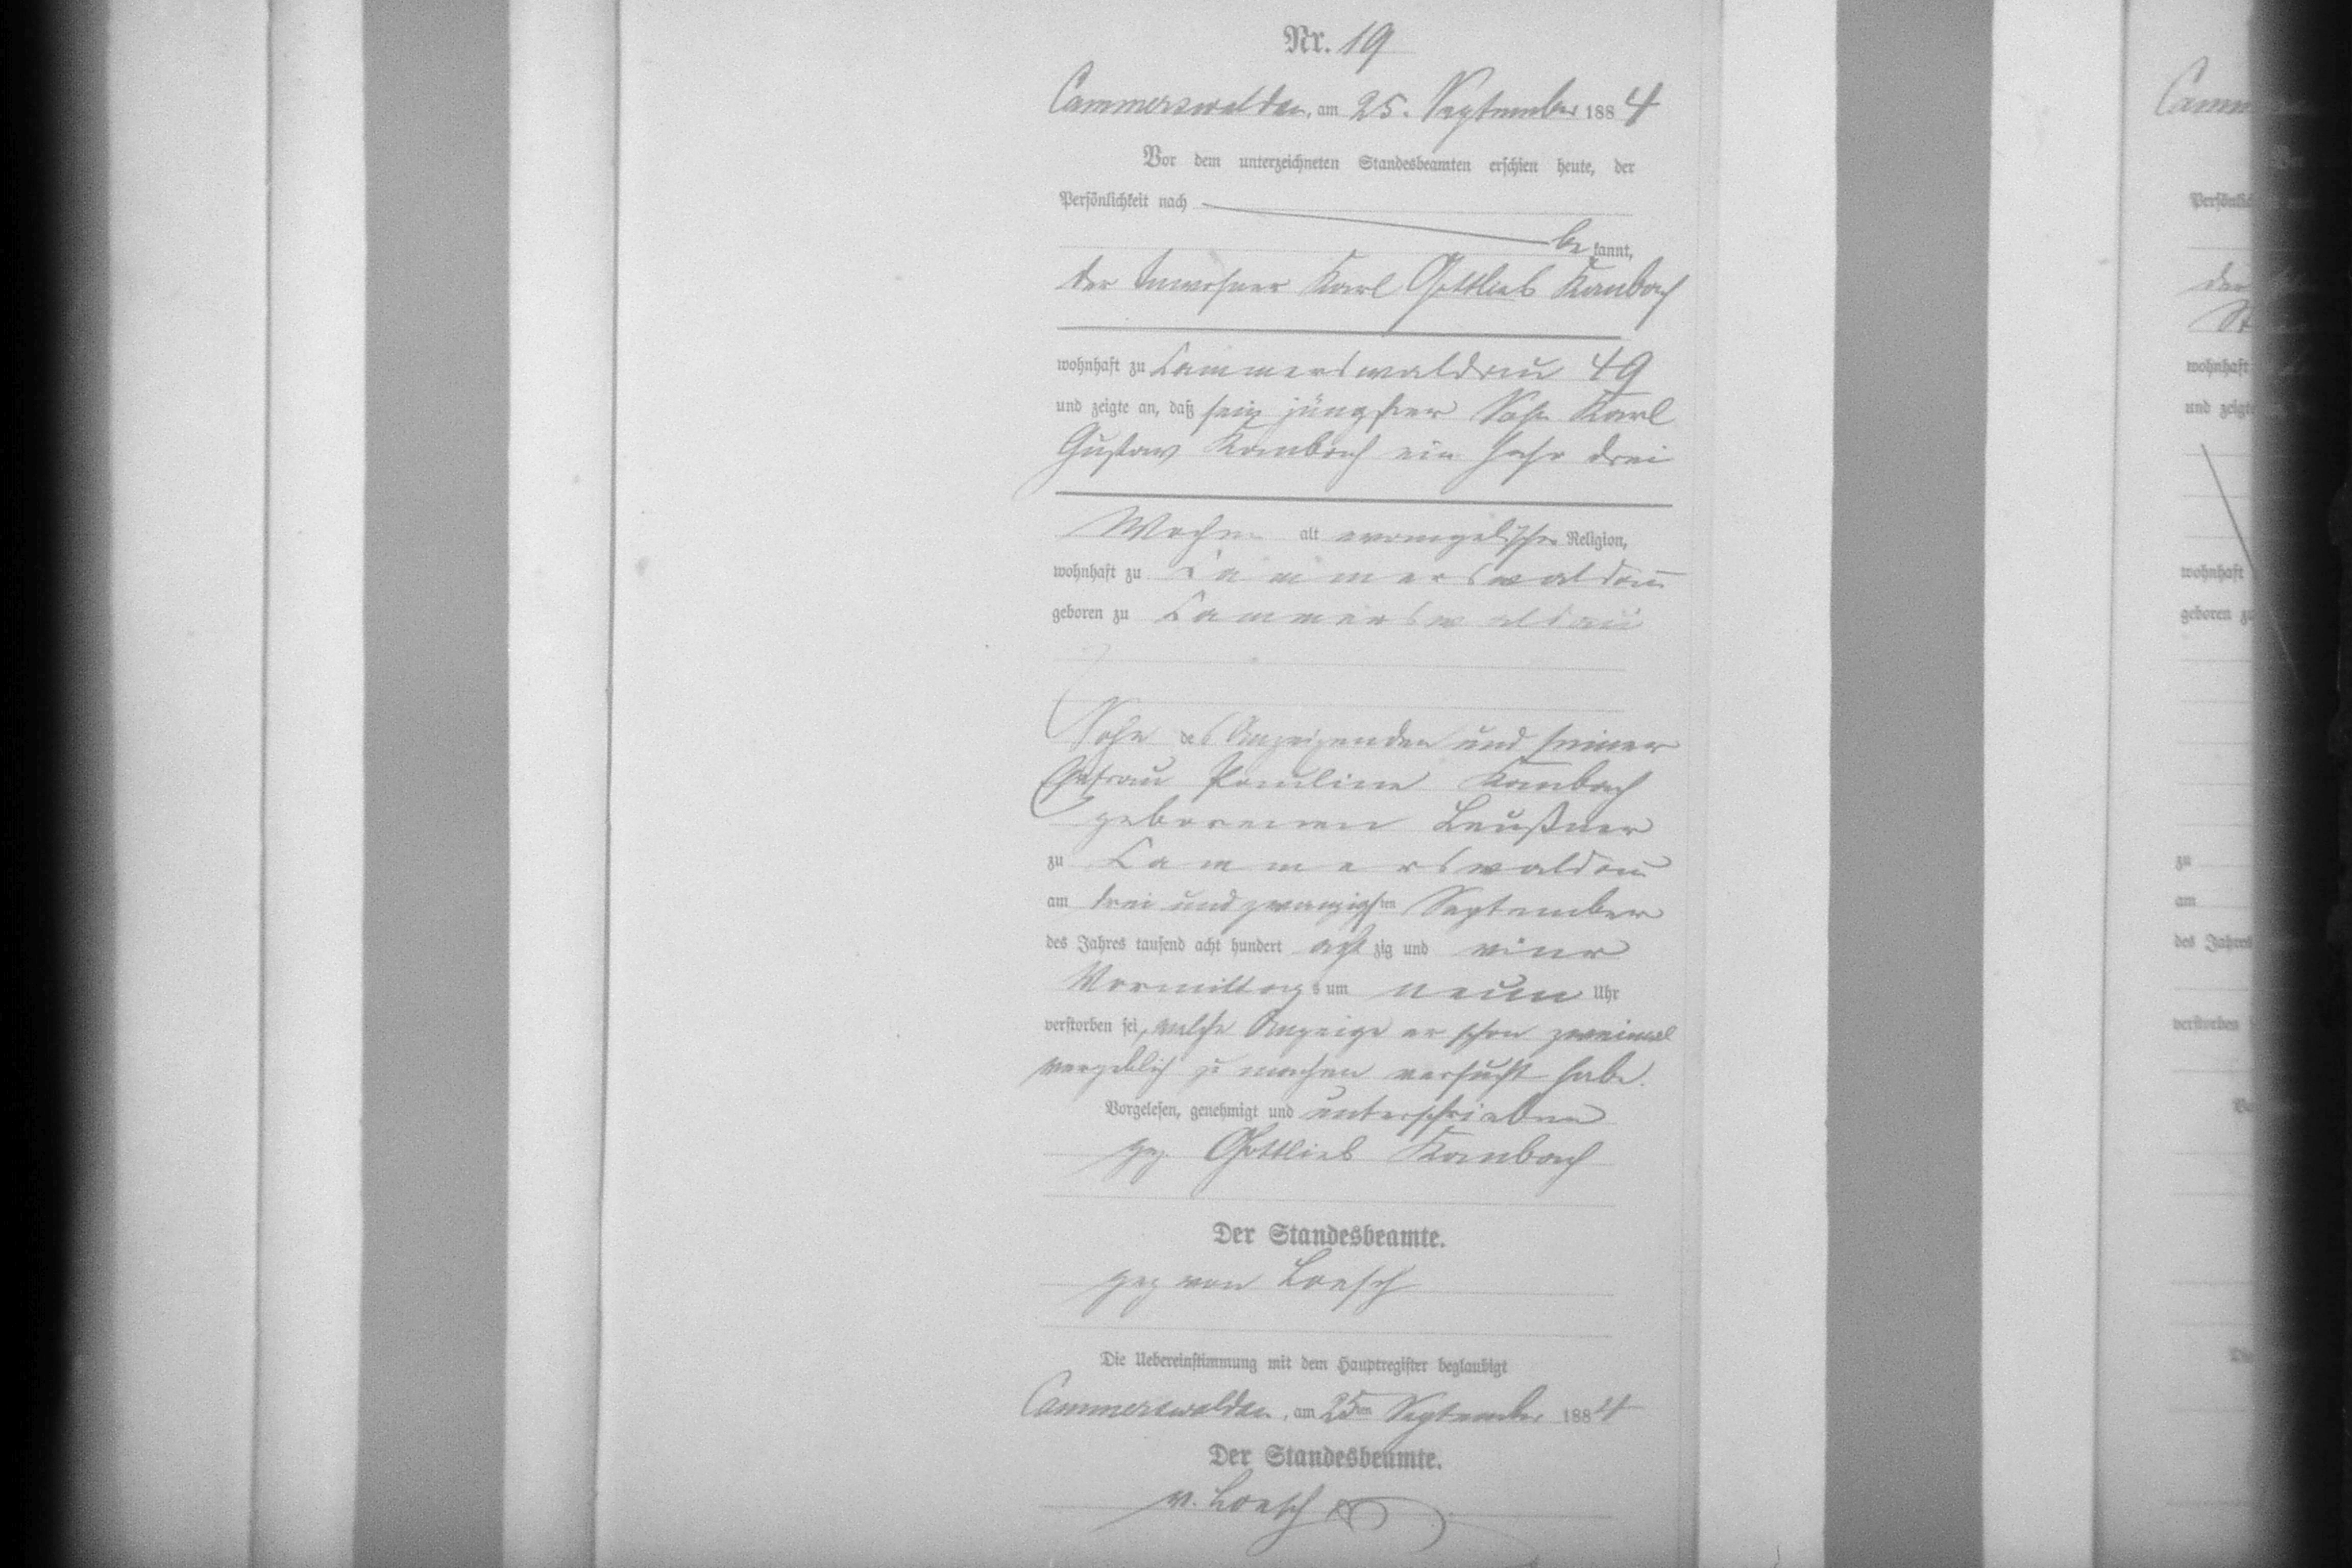 Nr. 19
Cammerswaldau, am 25. September 1884
Vor dem unterzeichneten Standesbeamten erschien heute, der
Persönlichkeit nach
bekannt,
der Inwohner Karl Gottlieb Kambach
wohnhaft zu Cammerswaldau 49
und zeigte an, daß sein jüngster Sohn Karl
Gustav Kambach ein Jahr drei
Wochen alt evangelischer Religion,
wohnhaft zu Cammerswaldau
geboren zu Cammerswaldau
Sohn des Anzeigenden und seiner
Ehefrau Pauline Kambach
geborenen Leußner
zu Cammerswaldau
am drei und zwanzigsten September
des Jahres tausend acht hundert achtzig und vier
Vormittags um neun Uhr
verstorben sei, welche Anzeige er schon zweimal
vergeblich zu machen versucht habe.
Vorgelesen, genehmigt und unterschrieben
gez. Gottlieb Kambach
Der Standesbeamte.
gez von Loesch
Die Uebereinstimmung mit dem Hauptregister beglaubigt
Cammerswaldau, am 25ten September 1884
Der Standesbeamte.
v. Loesch
Camm
der
St
wohnhaft
und zeigte
wohnhaft
geboren zu
zu
am
des Jahres
verstorben